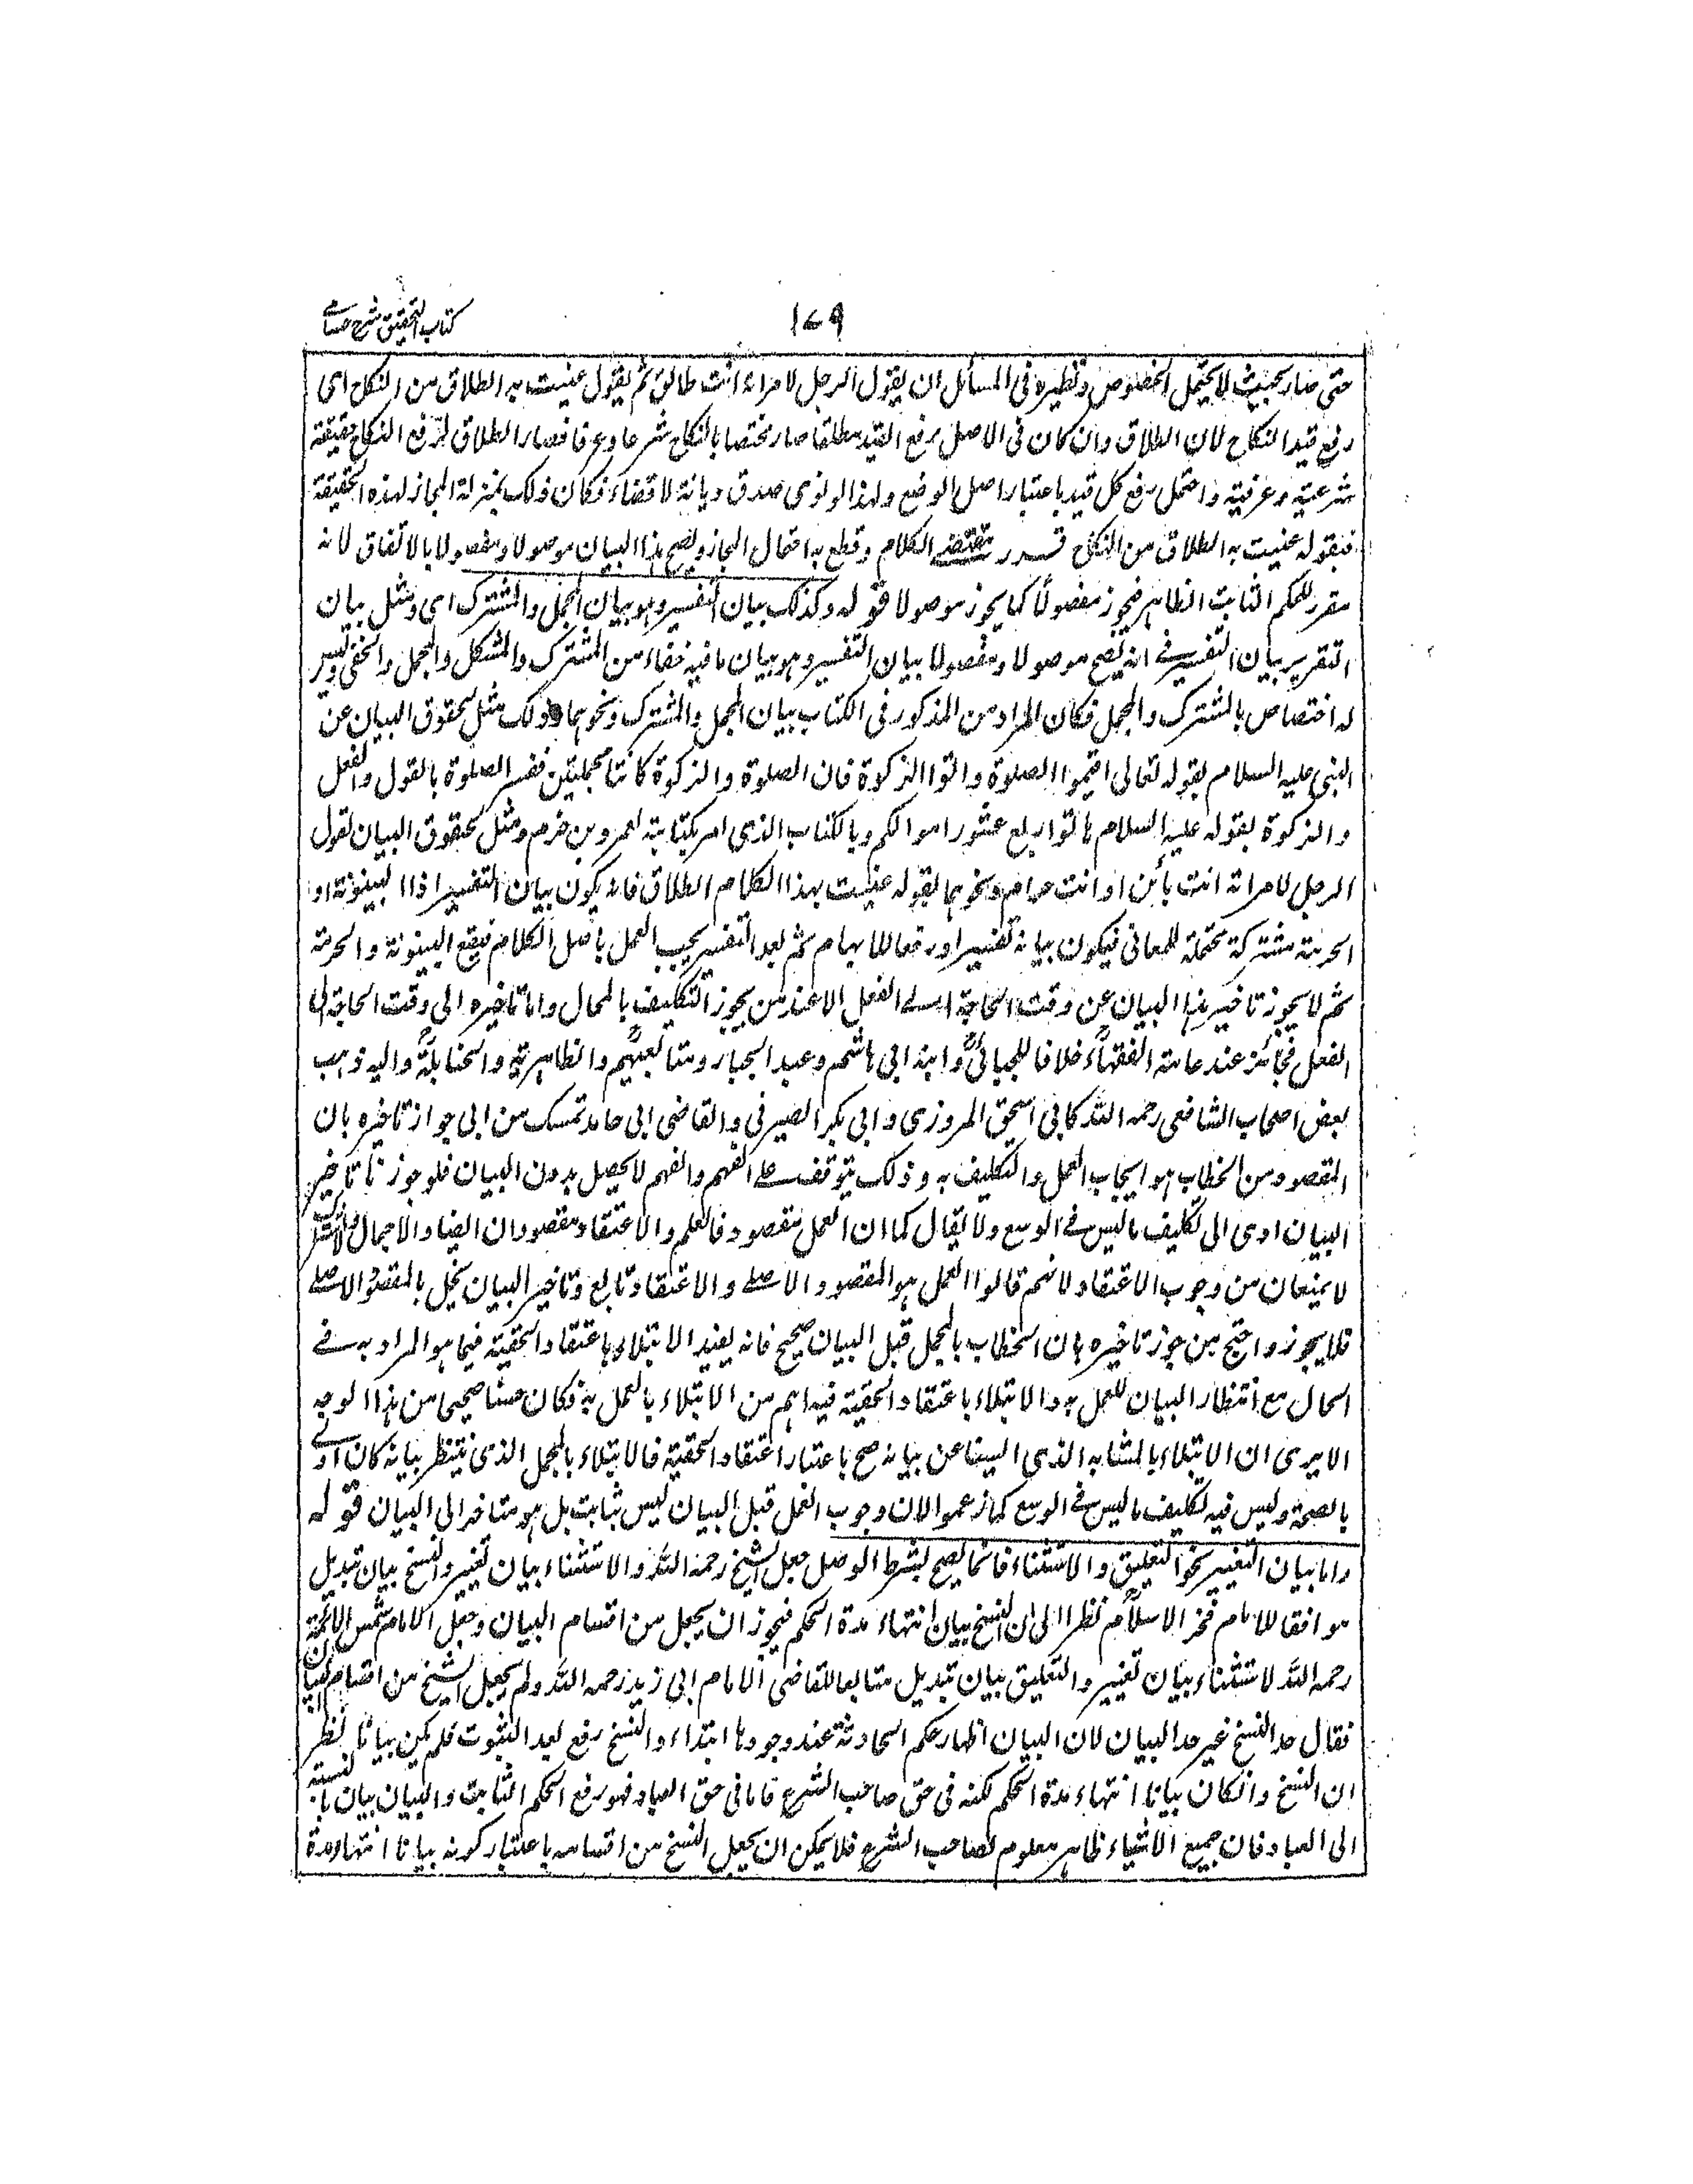 كتاب التحقيق شرح حسامى
١٧٩
حتى صار بحيث لا يحتمل الخصوص ونظيره فى المسائل ان يقول الرجل لامراته انت طالق ثم يقول عنيت به الطلاق من النكاح اى
رفع قيد النكاح لان الطلاق وان كان فى الاصل رفع القيد مطلقا صار مختصا بالنكاح شرعا وعرفا فصار الطلاق لرفع النكاح حقيقة
شرعية وعرفية واحتمل رفع كل قيد باعتبار اصل الوضع ولهذا لو نوى صدق ديانة لا قضاء فكان ذلك بمنزلة المجاز لهذه الحقيقة
فبقوله عنيت به الطلاق من النكاح قرر مقتضى الكلام وقطع به احتمال المجاز ويصح هذا البيان موصولا ومفصولا بالاتفاق لانه
مقرر للحكم الثابت الظاهر فيجوز مفصولا كما يجوز موصولا قوله وكذلك بيان التفسير وهو بيان المجمل والمشترك اى ومثل بيان
التقرير بيان التفسير فى انه يصح موصولا ومفصولا بيان التفسير وهو بيان ما فيه خفاء من المشترك والمشكل والمجمل والخفى وليس
له اختصاص بالمشترك والمجمل فكان المراد من المذكور فى الكتاب بيان المجمل والمشترك ونحوهما وذلك مثل لحقوق البيان عن
النبى عليه السلام بقوله تعالى اقيموا الصلوة واتوا الزكوة فان الصلوة والزكوة كانتا مجملتين ففسر الصلوة بالقول والفعل
والزكوة بقوله عليه السلام هاتوا ربع عشور اموالكم وبالكتاب الذى امر بكتابته لعمرو بن حزم ومثل لحقوق البيان لقول
الرجل لامراته انت بائن او انت حرام ونحوهما بقوله عنيت بهذا الكلام الطلاق فانه يكون بيان التفسير اذا البينونة او
الحرمة مشتركة محتملة للمعانى فيكون بيانه تفسيرا ورفعا للابهام ثم بعد التفسير يجب العمل باصل الكلام فيقع البينونة والحرمة
ثم لا يجوز تاخير هذا البيان عن وقت الحاجة الى الفعل الا عند من يجوز التكليف بالمحال واما تاخيره الى وقت الحاجة الى
الفعل فجائز عند عامة الفقهاء خلافا للجبائى وابنه ابى هاشم وعبد الجبار ومتابعيهم والظاهرية والحنابلة واليه ذهب
بعض اصحاب الشافعى رحمه الله كابى اسحق المروزى وابى بكر الصيرفى والقاضى ابى حامد تمسك من ابى جواز تاخيره بان
المقصود من الخطاب هو ايجاب العمل والتكليف به وذلك يتوقف على الفهم والفهم لا يحصل بدون البيان فلو جوزنا تاخير
البيان ادى الى تكليف ما ليس فى الوسع ولا يقال كما ان العمل مقصود فالعلم والاعتقاد مقصودان ايضا والاجمال والاشتراك
لا يمنعان من وجوب الاعتقاد لانهم قالوا العمل هو المقصود الاصلى والاعتقاد تابع وتاخير البيان يخل بالمقصود الاصلى
فلا يجوز واحتج من جوز تاخيره بان الخطاب بالمجمل قبل البيان صحيح فانه يفيد الابتلاء باعتقاد الحقية فيما هو المراد به فى
الحال مع انتظار البيان للعمل به والابتلاء باعتقاد الحقية فيه اهم من الابتلاء بالعمل به فكان حسنا صحيحا من هذا الوجه
الا يرى ان الابتلاء بالمتشابه الذى ايسنا عن بيانه صح باعتبار اعتقاد الحقية فالابتلاء بالمجمل الذى ينتظر بيانه كان اولى
بالصحة وليس فيه تكليف ما ليس فى الوسع كما زعموا لان وجوب العمل قبل البيان ليس بثابت بل هو متاخر الى البيان قوله
واما بيان التغيير نحو التعليق والاستثناء فانما يصح بشرط الوصل جعل الشيخ رحمه الله والاستثناء بيان تغيير والنسخ بيان تبديل
موافقا للامام فخر الاسلام نظرا الى ان النسخ بيان انتهاء مدة الحكم فيجوز ان يجعل من اقسام البيان وجعل الامام شمس الائمة
رحمه الله لاستثناء بيان تغيير والتعليق بيان تبديل متابعا للقاضى الامام ابى زيد رحمه الله ولم يجعل الشيخ من اقسام البيان
فقال حد النسخ غير حد البيان لان البيان اظهار حكم الحادثة عند وجودها ابتداء والنسخ رفع بعد الثبوت فلم يكن بيانا نظرا الى
ان النسخ وانكان بيانا انتهاء مدة الحكم لكنه فى حق صاحب الشرع فاما فى حق العباد فهو رفع الحكم الثابت والبيان بيان بالنسبة
الى العباد فان جميع الاشياء ظاهر معلوم لصاحب الشرع فلا يمكن ان يجعل النسخ من اقسامه باعتبار كونه بيانا انتهاء مدة